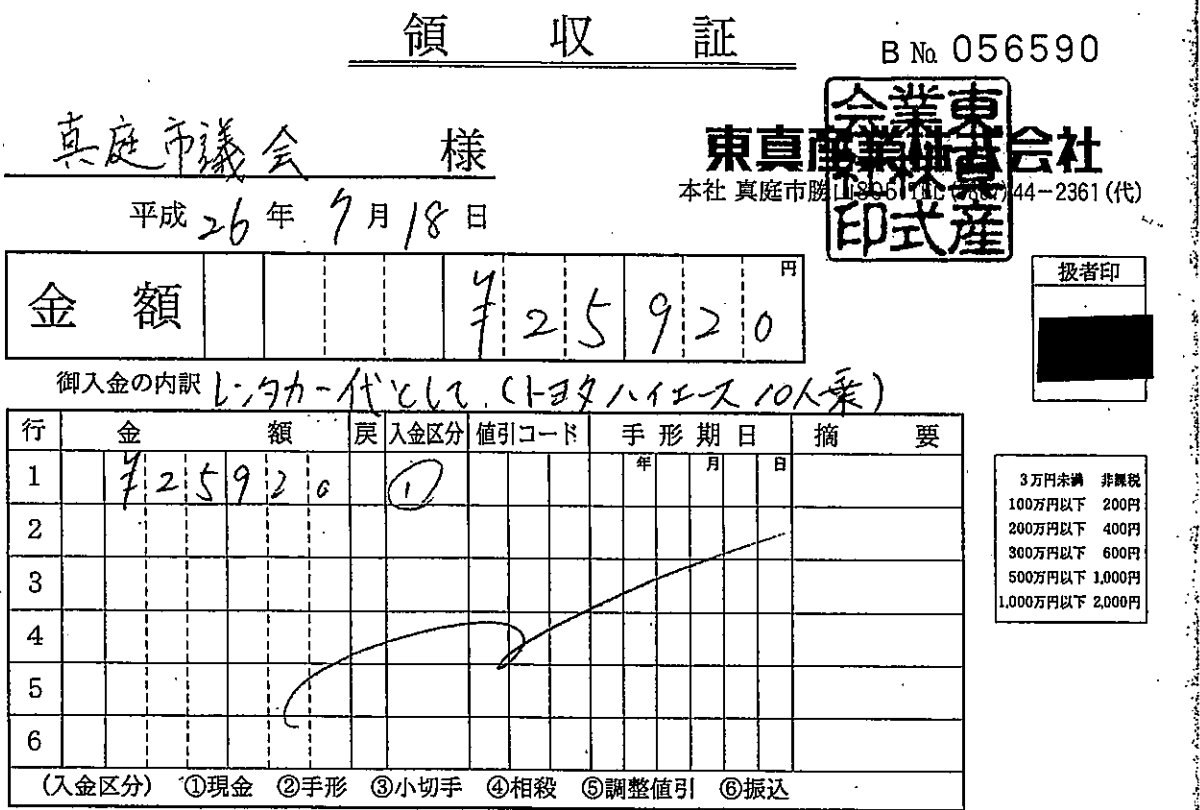 領収証
B No. 056590
真庭市議会 様
東真産業株式会社
本社 真庭市勝山 44-2361(代)
東真産業株式会社印
平成 26 年 7 月 18 日
金額 ¥25920 円
扱者印
御入金の内訳 レンタカー代として.(トヨタハイエース10人乗)
行 金額 戻 入金区分 値引コード 手形期日 摘要
年 月 日
1 ¥25920 ①
2
3
4
5
6
(入金区分) ①現金 ②手形 ③小切手 ④相殺 ⑤調整値引 ⑥振込
3万円未満 非課税
100万円以下 200円
200万円以下 400円
300万円以下 600円
500万円以下 1,000円
1,000万円以下 2,000円